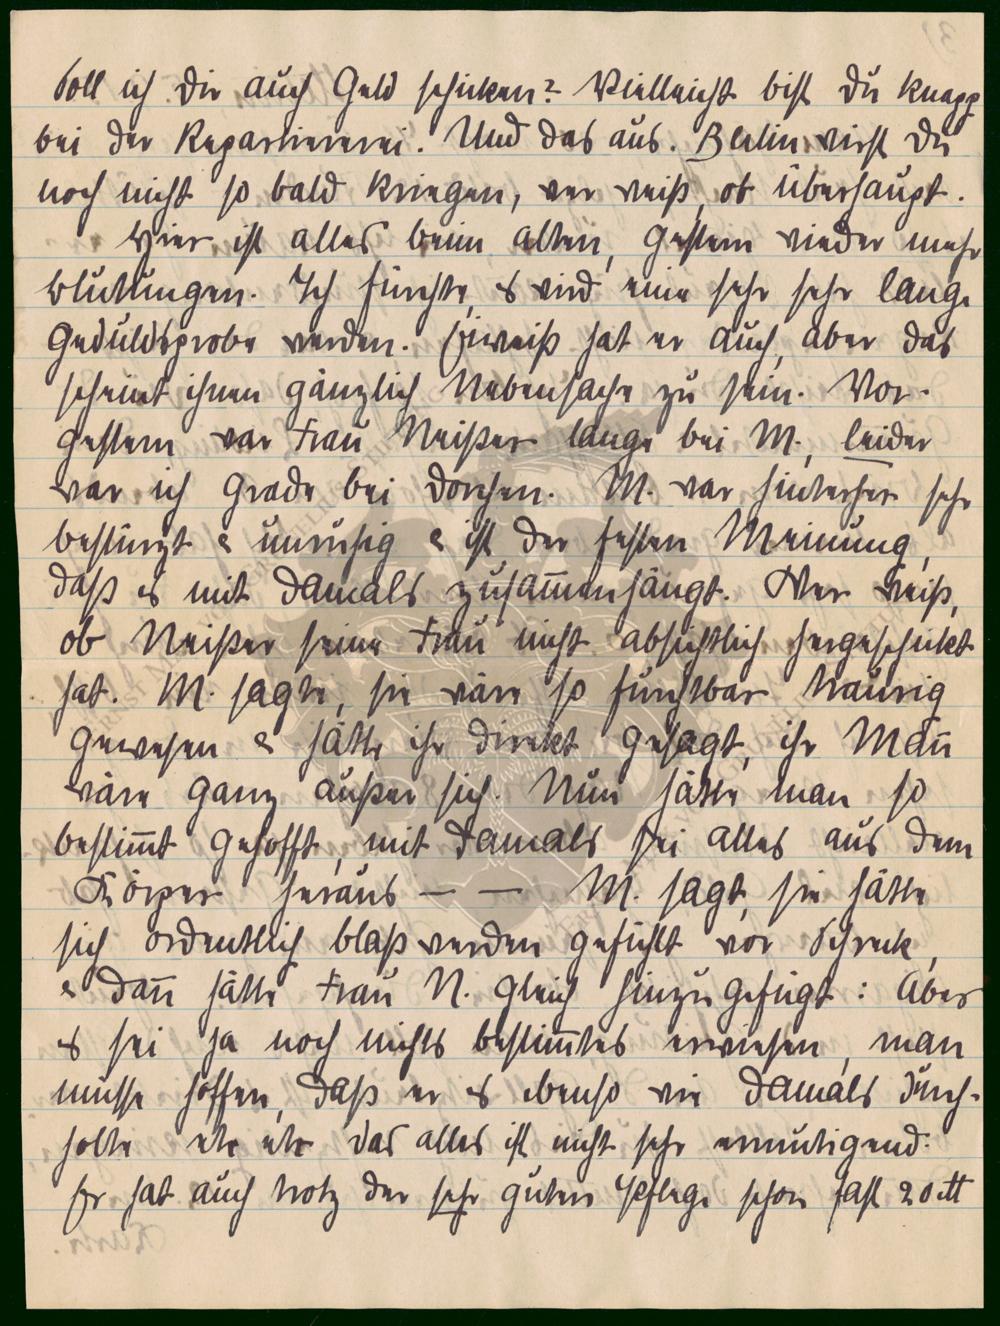 Soll ich Dir auch Geld schicken? Vielleicht bist Du knapp
bei der Reparirerei. Und das aus. Berlin wirst Du
noch nicht so bald kriegen, wer weiß, ob überhaupt.
Hier ist alles beim alten, gestern wieder mehr
Blutungen. Ich fürchte, es wird eine sehr sehr lange
Geduldsprobe werden. Eiweiß hat er auch, aber das
scheint ihnen gänzlich Nebensache zu sein. Vor-
gestern war Frau Neißer lange bei M., leider
war ich grade bei Dorchen. M. war hinterher sehr
bestürzt & unruhig & ist der festen Meinung,
daß es mit damals zusam̄enhängt. Wer weiß,
ob Neißer seine Frau nicht absichtlich hergeschickt
hat. M. sagte, sie wäre so furchtbar traurig
gewesen & hätte ihr direkt gesagt, ihr Man̄
wäre ganz außer sich. Nun hätte man so
bestim̄t gehofft, mit damals sei alles aus dem
Körper heraus — — M. sagt, sie hätte
sich ordentlich blaß werden gefühlt vor Schreck,
& dan̄ hätte Frau N. gleich hinzugefügt: Aber
es sei ja noch nichts bestim̄tes erwiesen, man
müsse hoffen, daß er es ebenso wie damals durch-
holte etc etc Das alles ist nicht sehr ermutigend.
Er hat auch trotz der sehr guten Pflege schon fast 20 ℔